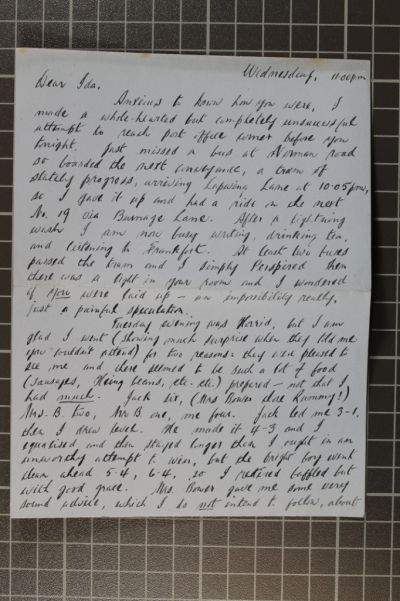 Wednesday, 11.00pm
Dear Ida,
Anxious to know how you were, I
made a whole-hearted but completely unsuccessful
attempt to reach post office corner before you
tonight. Just missed a bus at Norman road
so boarded the next conveyance, a tram of
stately progress, arriving Lapwing Lane at 10.05pm,
so I gave it up and had a ride on the next
No. 19 via Burnage Lane. After a lightning
wash I am now busy writing, drinking tea,
and listening to Frankfort. At least two buses
passed the tram and I simply perspired then
there was a light in your room and I wondered
if you were laid up - an impossibility really,
just a painful speculation.
Tuesday evening was Horrid, but I am
glad I went (showing much surprise when they told me
you couldn't attend) for two reasons - they were pleased to
see me and there seemed to be such a lot of food
(sausages, Heinz beans, etc. etc.) prepared - not that I
had much. Jack six, (Mrs Bower else Rummy!)
Mrs. B. two, Mr B one, me four. Jack led me 3-1,
then I drew level. He made it 4-3 and I
equalised and then stayed longer than I ought in an
unworthy attempt to win, but the bright boy went
clean ahead 5-4, 6-4, so I retired baffled but
with good grace. Mrs. Bower gave me some very
sound advice, which I do not intend to follow, about